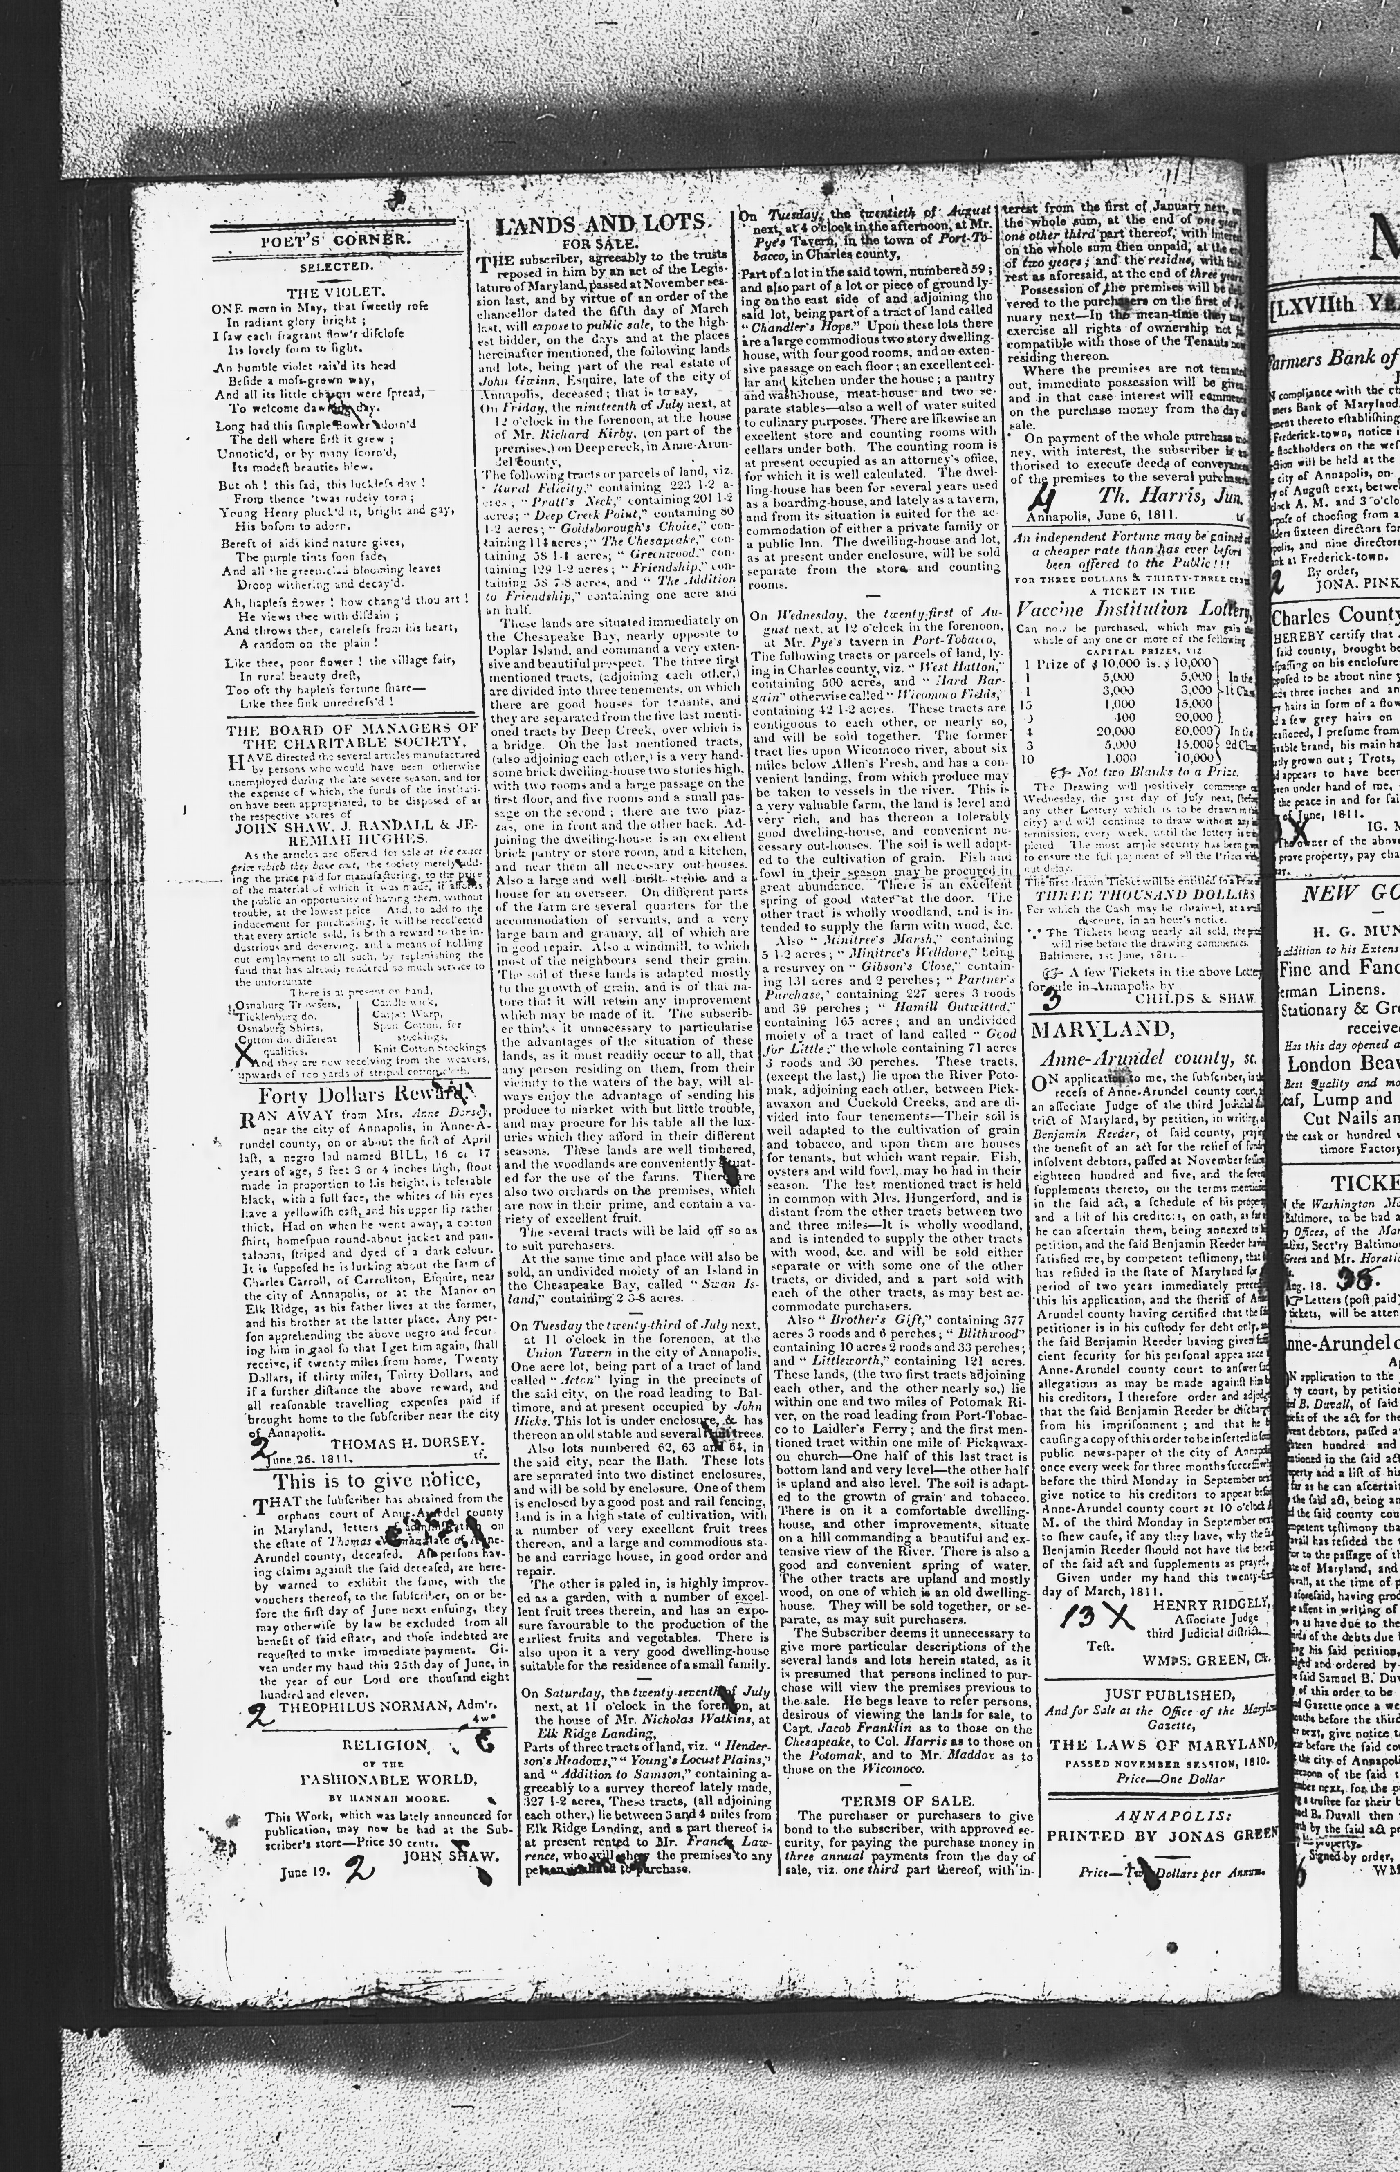 POET'S CORNER.
SELECTED.
THE VIOLET.
ONE morn in May, that ſweetly roſe
In radiant glory bright ;
I ſaw each fragrant flow'r diſcloſe
Its lovely form to ſight.
An humble violet rais'd its head
Beſide a moſs-grown way,
And all its little charms were ſpread,
To welcome dawning day.
Long had this ſimple flower adorn'd
The dell where firſt it grew ;
Unnotic'd, or by many ſcorn'd,
Its modeſt beauties blew.
But oh ! this ſad, this luckleſs day !
From thence 'twas rudely torn ;
Young Henry pluck'd it, bright and gay,
His boſom to adorn.
Bereft of aids kind nature gives,
The purple tints ſoon fade,
And all the green-clad blooming leaves
Droop withering and decay'd.
Ah, hapleſs flower ! how chang'd thou art !
He views thee with diſdain ;
And throws thee, careleſs from his heart,
A random on the plain !
Like thee, poor flower ! the village fair,
In rural beauty dreſt,
Too oft thy hapleſs fortune ſhare—
Like thee ſink unredreſs'd !
THE BOARD OF MANAGERS OF
THE CHARITABLE SOCIETY,
HAVE directed the several articles manufactured
by persons who would have been otherwise
unemployed during the late severe season, and for
the expense of which, the funds of the instituti-
on have been appropriated, to be disposed of at
the respective stores of
JOHN SHAW, J. RANDALL & JE-
REMIAH HUGHES.
As the articles are offered for sale at the exact
price which they have cost, the society merely add-
ing the price paid for manufacturing, to the price
of the material of which it was made, it affords
the public an opportunity of having them, without
trouble, at the lowest price. And, to add to the
inducement for purchasing, it will be recollected
that every article sold, is both a reward to the in-
dustrious and deserving, and a means of holding
out employment to all such, by replenishing the
fund that has already rendered so much service to
the unfortunate
There is at present on hand,
Osnaburg Trowsers,
Ticklenburg do.
Osnaburg Shirts,
Cotton do. different
qualities.
Candle wick,
Carpet Warp,
Spun Cotton, for
stockings,
Knit Cotton Stockings
X And they are now receiving from the weavers,
upwards of 100 yards of striped cotton cloth.
Forty Dollars Reward.
RAN AWAY from Mrs. Anne Dorsey,
near the city of Annapolis, in Anne-A-
rundel county, on or about the firſt of April
laſt, a negro lad named BILL, 16 or 17
years of age, 5 feet 3 or 4 inches high, ſtout
made in proportion to his height, is tolerable
black, with a full face, the whites of his eyes
have a yellowiſh caſt, and his upper lip rather
thick. Had on when he went away, a cotton
ſhirt, homeſpun round-about jacket and pan-
taloons, ſtriped and dyed of a dark colour.
It is ſuppoſed he is lurking about the farm of
Charles Carroll, of Carrollton, Eſquire, near
the city of Annapolis, or at the Manor on
Elk Ridge, as his father lives at the former,
and his brother at the latter place. Any per-
ſon apprehending the above negro and ſecur-
ing him in gaol ſo that I get him again, ſhall
receive, if twenty miles from home, Twenty
Dollars, if thirty miles, Thirty Dollars, and
if a further diſtance the above reward, and
all reaſonable travelling expenſes paid if
brought home to the ſubſcriber near the city
of Annapolis.
2 THOMAS H. DORSEY.
June 26. 1811. tf.
This is to give notice,
THAT the ſubſcriber has obtained from the
orphans court of Anne-Arundel county
in Maryland, letters of on
the eſtate of Thomas late of Anne-
Arundel county, deceaſed. All perſons hav-
ing claims againſt the ſaid deceaſed, are here-
by warned to exhibit the ſame, with the
vouchers thereof, to the ſubſcriber, on or be-
fore the firſt day of June next enſuing, they
may otherwiſe by law be excluded from all
benefit of ſaid eſtate, and thoſe indebted are
requeſted to make immediate payment. Gi-
ven under my hand this 25th day of June, in
the year of our Lord one thouſand eight
hundred and eleven.
2 THEOPHILUS NORMAN, Adm'r.
4w
RELIGION
OF THE
FASHIONABLE WORLD,
BY HANNAH MOORE.
This Work, which was lately announced for
publication, may now be had at the Sub-
scriber's store—Price 50 cents.
JOHN SHAW.
June 19. 2
LANDS AND LOTS
FOR SALE.
THE subscriber, agreeably to the trusts
reposed in him by an act of the Legis-
lature of Maryland, passed at November ses-
sion last, and by virtue of an order of the
chancellor dated the fifth day of March
last, will expose to public sale, to the high-
est bidder, on the days and at the places
hereinafter mentioned, the following lands
and lots, being part of the real estate of
John Gwinn, Esquire, late of the city of
Annapolis, deceased ; that is to say,
On Friday, the nineteenth of July next, at
12 o'clock in the forenoon, at the house
of Mr. Richard Kirby, (on part of the
premises,) on Deep creek, in Anne-Arun-
del county,
The following tracts or parcels of land, viz.
" Rural Felicity," containing 223 1-2 a-
cres ; " Pratt's Neck," containing 201 1-2
acres; " Deep Creek Point," containing 80
1-2 acres; " Goldsborough's Choice," con-
taining 114 acres; " The Chesapeake," con-
taining 58 1-4 acres; " Greenwood," con-
taining 129 1-2 acres; " Friendship," con-
taining 58 7-8 acres, and " The Addition
to Friendship," containing one acre and
an half.
These lands are situated immediately on
the Chesapeake Bay, nearly opposite to
Poplar Island, and command a very exten-
sive and beautiful prospect. The three first
mentioned tracts, (adjoining each other,)
are divided into three tenements, on which
there are good houses for tenants, and
they are separated from the five last menti-
oned tracts by Deep Creek, over which is
a bridge. On the last mentioned tracts,
(also adjoining each other,) is a very hand-
some brick dwelling-house two stories high,
with two rooms and a large passage on the
first floor, and five rooms and a small pas-
sage on the second ; there are two piaz-
zas, one in front and the other back. Ad-
joining the dwelling-house is an excellent
brick pantry or store room, and a kitchen,
and near them all necessary out-houses.
Also a large and well built stable, and a
house for an overseer. On different parts
of the farm are several quarters for the
accommodation of servants, and a very
large barn and granary, all of which are
in good repair. Also a windmill, to which
most of the neighbours send their grain.
The soil of these lands is adapted mostly
to the growth of grain, and is of that na-
ture that it will retain any improvement
which may be made of it. The subscrib-
er thinks it unnecessary to particularise
the advantages of the situation of these
lands, as it must readily occur to all, that
any person residing on them, from their
vicinity to the waters of the bay, will al-
ways enjoy the advantage of sending his
produce to market with but little trouble,
and may procure for his table all the lux-
uries which they afford in their different
seasons. These lands are well timbered,
and the woodlands are conveniently situat-
ed for the use of the farms. There are
also two orchards on the premises, which
are now in their prime, and contain a va-
riety of excellent fruit.
The several tracts will be laid off so as
to suit purchasers.
At the same time and place will also be
sold, an undivided moiety of an Island in
the Chesapeake Bay, called " Swan Is-
land," containing 2 5-8 acres.
On Tuesday the twenty-third of July next,
at 11 o'clock in the forenoon, at the
Union Tavern in the city of Annapolis.
One acre lot, being part of a tract of land
called " Acton" lying in the precincts of
the said city, on the road leading to Bal-
timore, and at present occupied by John
Hicks. This lot is under enclosure, & has
thereon an old stable and several fruit trees.
Also lots numbered 62, 63 and 64, in
the said city, near the Bath. These lots
are separated into two distinct enclosures,
and will be sold by enclosure. One of them
is enclosed by a good post and rail fencing,
land is in a high state of cultivation, with
a number of very excellent fruit trees
thereon, and a large and commodious sta-
ble and carriage house, in good order and
repair.
The other is paled in, is highly improv-
ed as a garden, with a number of excel-
lent fruit trees therein, and has an expo-
sure favourable to the production of the
earliest fruits and vegetables. There is
also upon it a very good dwelling-house
suitable for the residence of a small family.
On Saturday, the twenty seventh of July
next, at 11 o'clock in the forenoon, at
the house of Mr. Nicholas Watkins, at
Elk Ridge Landing,
Parts of three tracts of land, viz. " Hender-
son's Meadows," " Young's Locust Plains,"
and " Addition to Samson," containing a-
greeably to a survey thereof lately made,
327 1-2 acres, These tracts, (all adjoining
each other,) lie between 3 and 4 miles from
Elk Ridge Landing, and a part thereof is
at present rented to Mr. Francis Law-
rence, who will shew the premises to any
person to purchase.
On Tuesday, the twentieth of August
next, at 4 o'clock in the afternoon, at Mr.
Pye's Tavern, in the town of Port-To-
bacco, in Charles county,
Part of a lot in the said town, numbered 59 ;
and also part of a lot or piece of ground ly-
ing on the east side of and adjoining the
said lot, being part of a tract of land called
" Chandler's Hope." Upon these lots there
are a large commodious two story dwelling-
house, with four good rooms, and an exten-
sive passage on each floor ; an excellent cel-
lar and kitchen under the house ; a pantry
and wash-house, meat-house and two se-
parate stables—also a well of water suited
to culinary purposes. There are likewise an
excellent store and counting rooms with
cellars under both. The counting room is
at present occupied as an attorney's office,
for which it is well calculated. The dwel-
ling-house has been for several years used
as a boarding-house, and lately as a tavern,
and from its situation is suited for the ac-
commodation of either a private family or
a public Inn. The dwelling-house and lot,
as at present under enclosure, will be sold
separate from the store and counting
rooms.
On Wednesday, the twenty-first of Au-
gust next, at 12 o'clock in the forenoon,
at Mr. Pye's tavern in Port-Tobacco,
The following tracts or parcels of land, ly-
ing in Charles county, viz. " West Hatton,"
containing 500 acres, and " Hard Bar-
gain" otherwise called " Wicomoco Fields,"
containing 42 1-2 acres. These tracts are
contiguous to each other, or nearly so,
and will be sold together. The former
tract lies upon Wicomoco river, about six
miles below Allen's Fresh, and has a con-
venient landing, from which produce may
be taken to vessels in the river. This is
a very valuable farm, the land is level and
very rich, and has thereon a tolerably
good dwelling-house, and convenient ne-
cessary out-houses. The soil is well adapt-
ed to the cultivation of grain. Fish and
fowl in their season may be procured in
great abundance. There is an excellent
spring of good water at the door. The
other tract is wholly woodland, and is in-
tended to supply the farm with wood, &c.
Also " Minitree's Marsh," containing
5 1-2 acres ; " Minitree's Welldove," being
a resurvey on " Gibson's Close," contain-
ing 131 acres and 2 perches ; " Partner's
Purchase," containing 227 acres 3 roods
and 39 perches ; " Hamill Outwitted,"
containing 165 acres ; and an undivided
moiety of a tract of land called " Good
for Little ;" the whole containing 71 acres
3 roods and 30 perches. These tracts,
(except the last,) lie upon the River Poto-
mak, adjoining each other, between Pick-
awaxon and Cuckold Creeks, and are di-
vided into four tenements—Their soil is
well adapted to the cultivation of grain
and tobacco, and upon them are houses
for tenants, but which want repair. Fish,
oysters and wild fowl, may be had in their
season. The last mentioned tract is held
in common with Mrs. Hungerford, and is
distant from the other tracts between two
and three miles—It is wholly woodland,
and is intended to supply the other tracts
with wood, &c. and will be sold either
separate or with some one of the other
tracts, or divided, and a part sold with
each of the other tracts, as may best ac-
commodate purchasers.
Also " Brother's Gift," containing 377
acres 3 roods and 6 perches ; " Blithwood"
containing 10 acres 2 roods and 33 perches ;
and " Littleworth," containing 121 acres.
These lands, (the two first tracts adjoining
each other, and the other nearly so,) lie
within one and two miles of Potomak Ri-
ver, on the road leading from Port-Tobac-
co to Laidler's Ferry ; and the first men-
tioned tract within one mile of Pickawax-
on church—One half of this last tract is
bottom land and very level—the other half
is upland and also level. The soil is adapt-
ed to the growth of grain and tobacco.
There is on it a comfortable dwelling-
house, and other improvements, situate
on a hill commanding a beautiful and ex-
tensive view of the River. There is also a
good and convenient spring of water.
The other tracts are upland and mostly
wood, on one of which is an old dwelling-
house. They will be sold together, or se-
parate, as may suit purchasers.
The Subscriber deems it unnecessary to
give more particular descriptions of the
several lands and lots herein stated, as it
is presumed that persons inclined to pur-
chase will view the premises previous to
the sale. He begs leave to refer persons,
desirous of viewing the lands for sale, to
Capt. Jacob Franklin as to those on the
Chesapeake, to Col. Harris as to those on
the Potomak, and to Mr. Maddox as to
those on the Wicomoco.
TERMS OF SALE.
The purchaser or purchasers to give
bond to the subscriber, with approved se-
curity, for paying the purchase money in
three annual payments from the day of
sale, viz. one third part thereof, with in-
terest from the first of January next, on
the whole sum, at the end of one year,
one other third part thereof, with interest
on the whole sum then unpaid, at the end
of two years ; and the residue, with inte-
rest as aforesaid, at the end of three years.
Possession of the premises will be deli-
vered to the purchasers on the first of Ja-
nuary next—In the mean-time they may
exercise all rights of ownership not in-
compatible with those of the Tenants now
residing thereon.
Where the premises are not tenanted
out, immediate possession will be given,
and in that case interest will commence
on the purchase money from the day of
sale.
On payment of the whole purchase mo-
ney, with interest, the subscriber is au-
thorised to execute deeds of conveyance
of the premises to the several purchasers.
4 Th. Harris, Jun.
Annapolis, June 6, 1811. ts
An independent Fortune may be gained at
a cheaper rate than has ever before
been offered to the Public!!!
FOR THREE DOLLARS & THIRTY-THREE CENTS
A TICKET IN THE
Vaccine Institution Lottery,
Can now be purchased, which may gain the
whole of any one or more of the following
CAPITAL PRIZES, VIZ
1 Prize of $10,000 is $10,000
1 5,000 5,000 In the
1 3,000 3,000 1st Class
15 1,000 15,000
400 20,000
4 20,000 80,000 In the
3 5,000 15,000 2d Class
10 1,000 10,000
Not two Blanks to a Prize.
The Drawing will positively commence on
Wednesday, the 31st day of July next, (before
any other Lottery which is to be drawn in the
city) and will continue to draw without any in-
termission, every week, until the lottery is com-
pleted. The most ample security has been given
to ensure the full payment of all the Prizes
The first drawn Ticket will be entitled to a Prize
THREE THOUSAND DOLLARS
For which the Cash may be obtained, at a small
discount, in an hour's notice.
The Tickets being nearly all sold, the price
will rise before the drawing commences.
Baltimore, 1st June, 1811.
A few Tickets in the above Lottery
for sale in Annapolis by
3 CHILDS & SHAW.
MARYLAND,
Anne-Arundel county, sc.
ON application to me, the ſubſcriber, in the
receſs of Anne-Arundel county court,
an aſſociate Judge of the third Judicial diſ-
trict of Maryland, by petition, in writing, of
Benjamin Reeder, of ſaid county, praying
the benefit of an act for the relief of ſundry
inſolvent debtors, paſſed at November ſeſſion
eighteen hundred and five, and the ſeveral
ſupplements thereto, on the terms mentioned
in the ſaid act, a ſchedule of his property
and a liſt of his creditors, on oath, as far as
he can aſcertain them, being annexed to his
petition, and the ſaid Benjamin Reeder having
ſatisfied me, by competent teſtimony, that he
has reſided in the ſtate of Maryland for the
period of two years immediately preceding
this his application, and the ſheriff of Anne-
Arundel county having certified that the ſaid
petitioner is in his cuſtody for debt only,
the ſaid Benjamin Reeder having given ſuffi-
cient ſecurity for his perſonal appearance at
Anne-Arundel county court to anſwer ſuch
allegations as may be made againſt him by
his creditors, I therefore order and adjudge
that the ſaid Benjamin Reeder be diſcharged
from his impriſonment ; and that he by
cauſing a copy of this order to be inſerted in ſome
public news-paper of the city of Annapolis
once every week for three months ſucceſſively
before the third Monday in September next
give notice to his creditors to appear before
Anne-Arundel county court at 10 o'clock A.
M. of the third Monday in September next
to ſhew cauſe, if any they have, why the ſaid
Benjamin Reeder ſhould not have the benefit
of the ſaid act and ſupplements as prayed.
Given under my hand this
day of March, 1811.
13 X HENRY RIDGELY,
Aſſociate Judge
third Judicial diſtrict.
Teſt.
WM. S. GREEN, Clk.
JUST PUBLISHED,
And for Sale at the Office of the Maryland
Gazette,
THE LAWS OF MARYLAND,
PASSED NOVEMBER SESSION, 1810.
Price—One Dollar
ANNAPOLIS:
PRINTED BY JONAS GREEN
Price—Two Dollars per Annum.
M
[LXVIIth
Farmers Bank of
compliance with the
Bank of Maryland
thereto eſtabliſhing
Frederick-town, notice
ſtockholders on the
will be held at the
city of Annapolis, on
of Auguſt next,
A. M. and 3 o'clo
of chooſing from
ſixteen directors for
and nine directors
at Frederick-town.
By order,
2 JONA. PINK
Charles County
HEREBY certify that
ſaid county, brought
on his encloſure
to be about nine
three inches and
hairs in form of a
a few grey hairs on
I preſume from
brand, his main
grown out ; Trots,
appears to have been
under hand of me,
the peace in and for
of June, 1811.
X IG. M
The owner of the above
prove property, pay
NEW GO
H. G. MUN
addition to his Extens
Fine and Fanc
German Linens.
Stationary & Gr
receive
Has this day opened
London Beav
Best Quality and
Loaf, Lump and
Cut Nails an
the cask or hundred
timore Factory
TICKE
the Washington
Baltimore, to be had
Offices, of the
Sect'ry
Green and Mr.
Aug. 18. 38.
Letters (poſt paid)
will be atten
Anne-Arundel
ON application to the
court, by petition
B. Duvall, of ſaid
of the act for the
debtors, paſſed
hundred and
in the ſaid act
and a liſt of his
as he can aſcertain
the ſaid act, being
the ſaid county
teſtimony that
has reſided the
to the paſſage of
of Maryland, and
at the time of
aforeſaid, having
aſſent in writing of
as have due to the
of the debts due
his ſaid petition,
and ordered by
ſaid Samuel B. Duv
of this order to be
Gazette once a
before the third
next, give notice
before the ſaid
the city of Annapol
of the ſaid
next, for the
a truſtee for their
B. Duvall then
by the ſaid act
property.
Signed by order,
WM